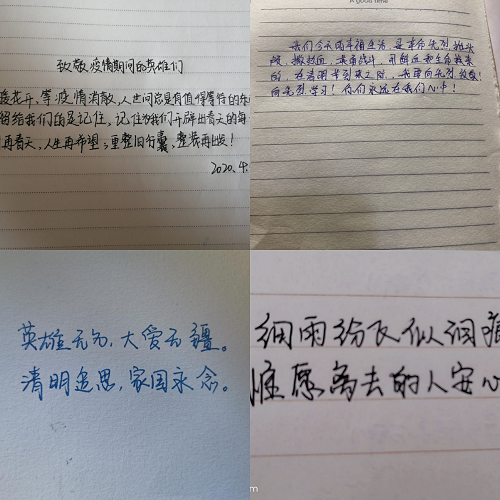 致敬疫情期间的英雄们
暖花开，等疫情消散，人世间总是有值得等待的东
将给我们的是记住，记住为我们开辟出春天的每
再春天，人生再希望，重整旧行囊，整装再出发！
2020.4.
A good time
我们今天的幸福生活，是革命先烈抛头
颅，洒热血，英勇战斗，用鲜血和生命换来
的，在清明节到来之际，我要向先烈致敬！
向先烈学习！你们永远在我们心中！
英雄无名，大爱无疆。
清明追思，家国永念。
细雨纷飞似泪痕
惟愿离去的人安心
m